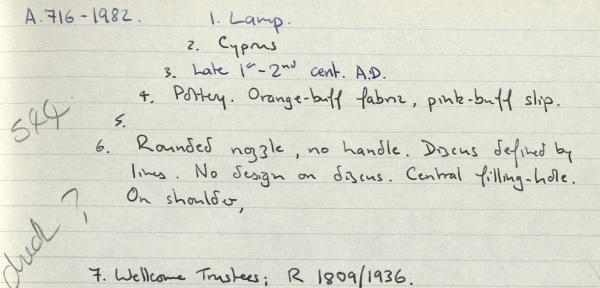 A.716-1982. 1. Lamp.
2. Cyprus
3. Late 1st-2nd cent. A.D.
4. Pottery. Orange-buff fabric, pink-buff slip.
5.
6. Rounded nozzle, no handle. Discus defined by
lines. No design on discus. Central filling-hole.
On shoulder,
544
?
7. Wellcome Trustees; R 1809/1936.